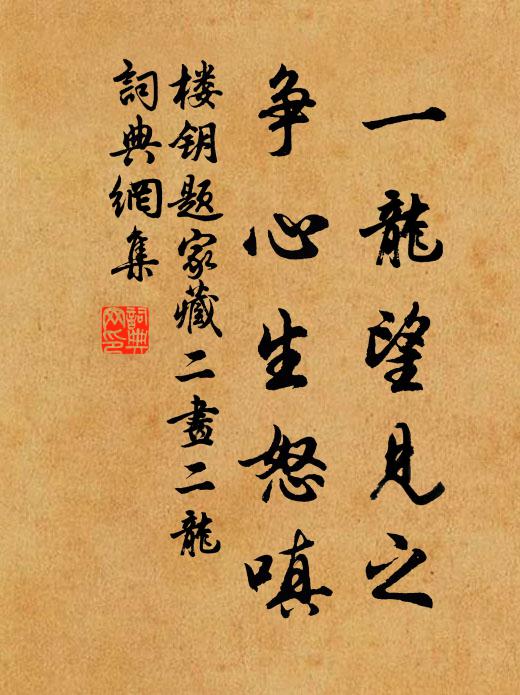 一龍望見之
争心生怒嗔
楼钥题家藏二畫二龍
詞典網集
詞典網印